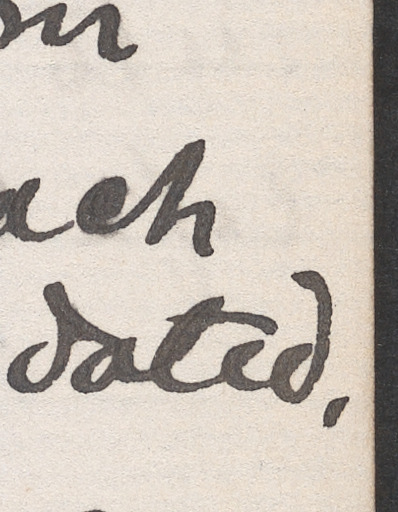 ach
dated,